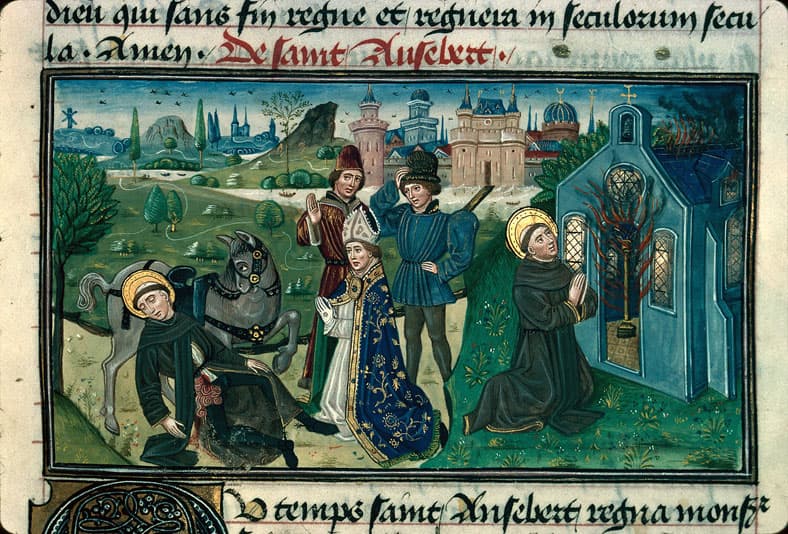 dieu qui sans fin regne et regnera in seculorum secu
la. Amen. De saint Ausebert.
U temps saint Ansebert regna monsr